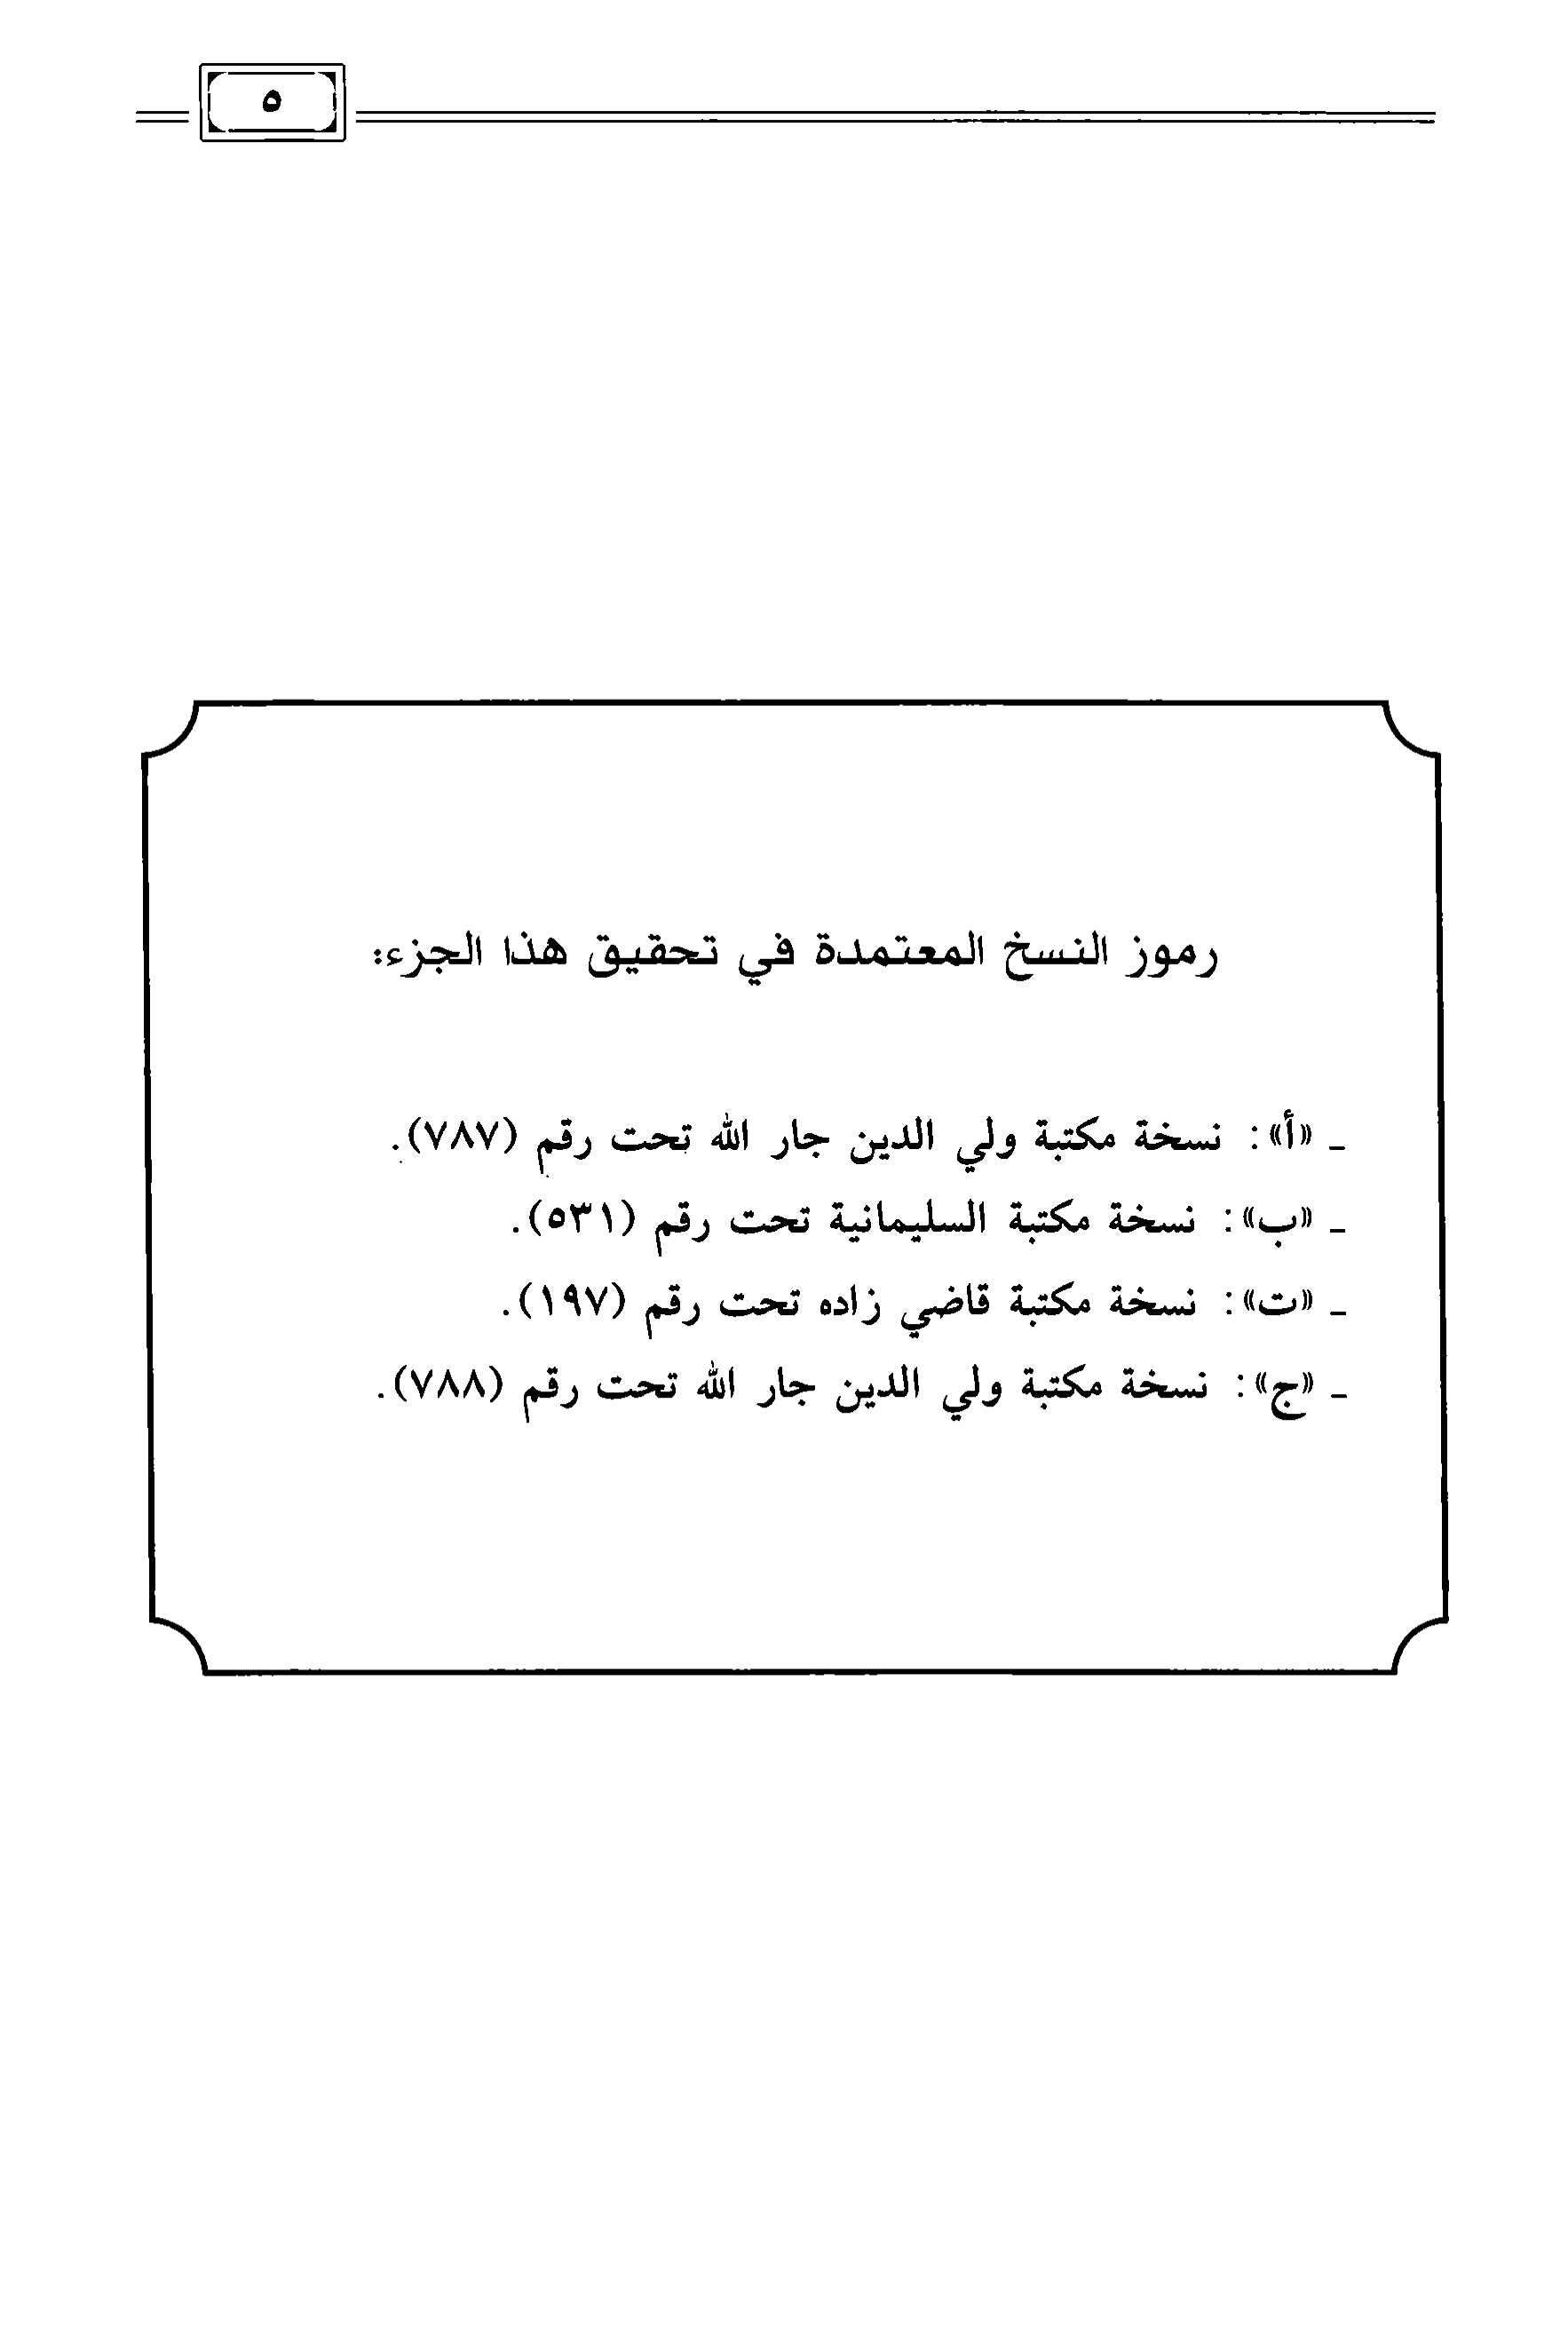 ٥
رموز النسخ المعتمدة في تحقيق هذا الجزء:
ـ «أ»: نسخة مكتبة ولي الدين جار الله تحت رقم (٧٨٧).
ـ «ب»: نسخة مكتبة السليمانية تحت رقم (٥٣١).
ـ «ت»: نسخة مكتبة قاضي زاده تحت رقم (١٩٧).
ـ «ج»: نسخة مكتبة ولي الدين جار الله تحت رقم (٧٨٨).